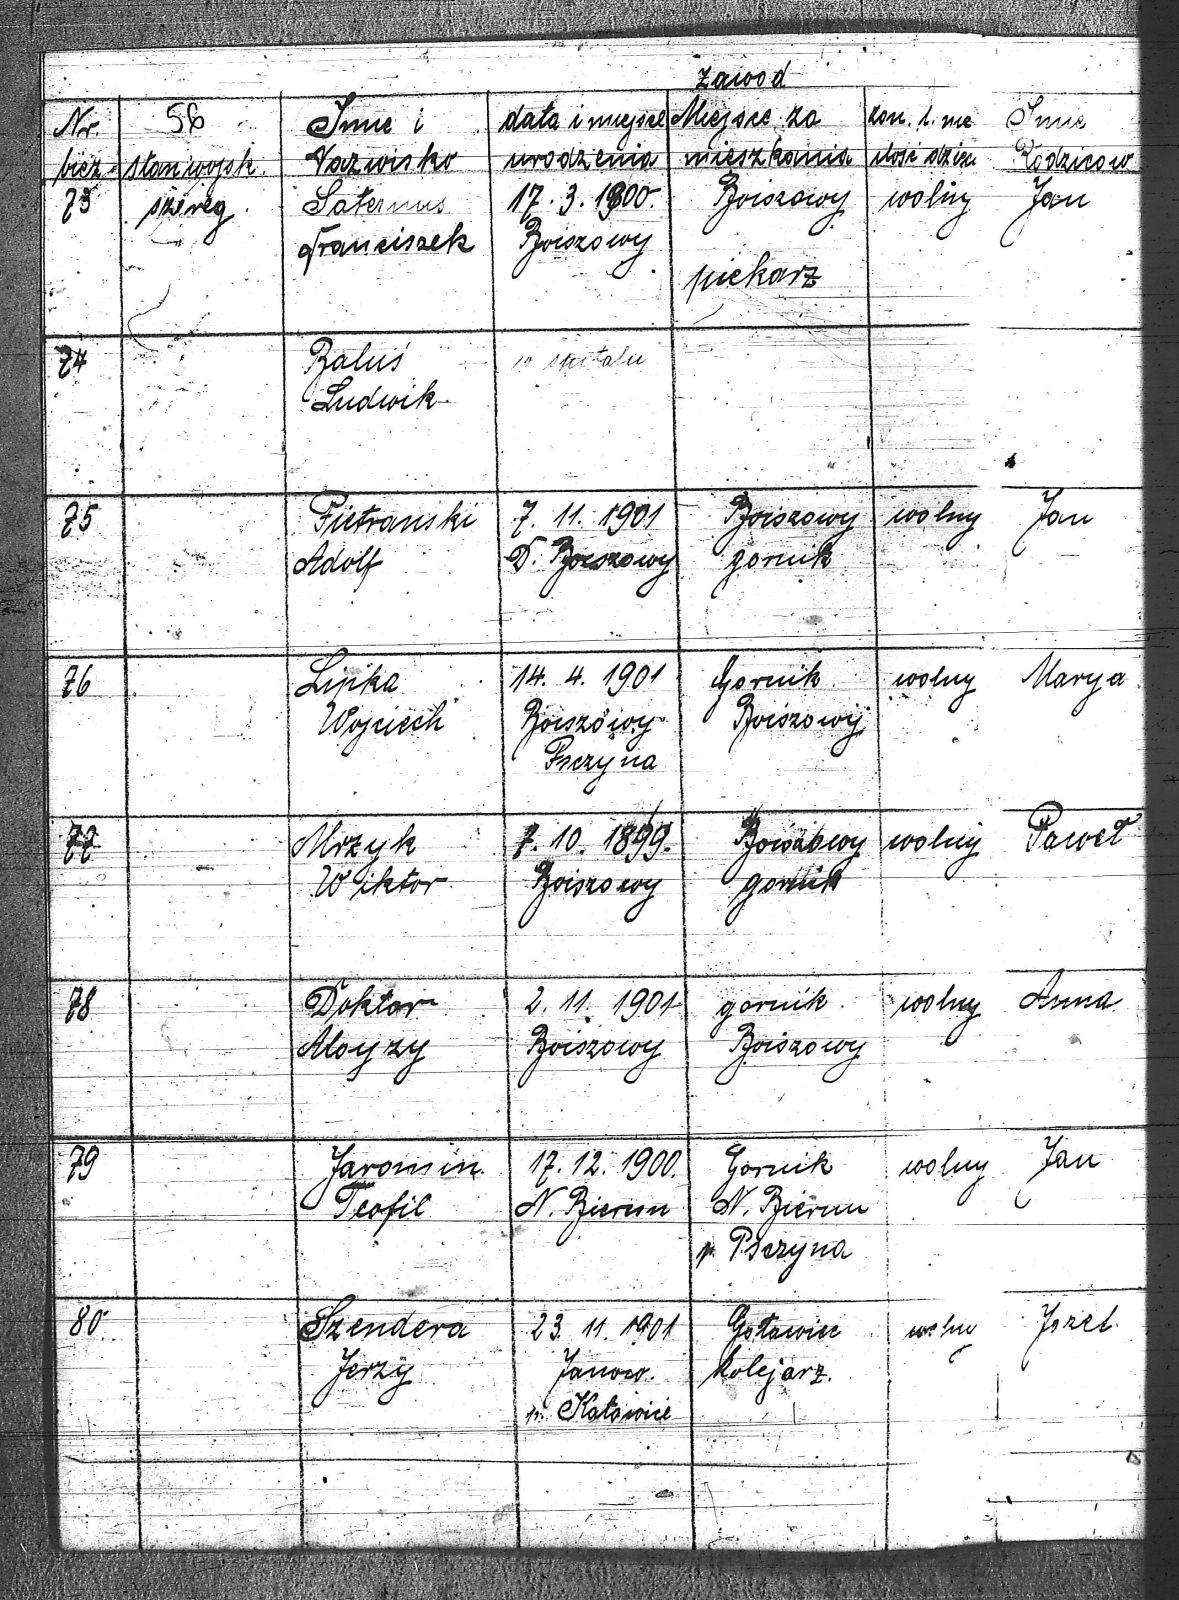 56
zawod
Nr. bież. stan wojsk. Imie i Nazwisko data i miejsce urodzenia Miejsce za mieszkania Imie Rodzicow
73 szereg. Saternus 17. 3. 1900. Boiszowy wolny Jan
Franciszek Boiszowy
piekarz
74 Baluś w szpitalu
Ludwik
75 Pietranski 7. 11. 1901 Boiszowy wolny Jan
Adolf D. Boiszowy gornik
76 Lipka 14. 4. 1901 Gornik wolny Marya
Wojciech Boiszowy Boiszowy
Psczyna
77 Mrzyk 7. 10. 1899. Boiszowy wolny Paweł
Wiktor Boiszowy gornik
78 Doktor 2. 11. 1901 gornik wolny Anna
Aloyzy Boiszowy Boiszowy
79 Jaromin 17. 12. 1900. Gornik wolny Jan
Teofil N. Bierun N. Bierun
p. Psczyna
80. Szendera 23. 11. 1901 Goławiec wolny Jozef
Jerzy Janow. kolejarz.
p. Katowice